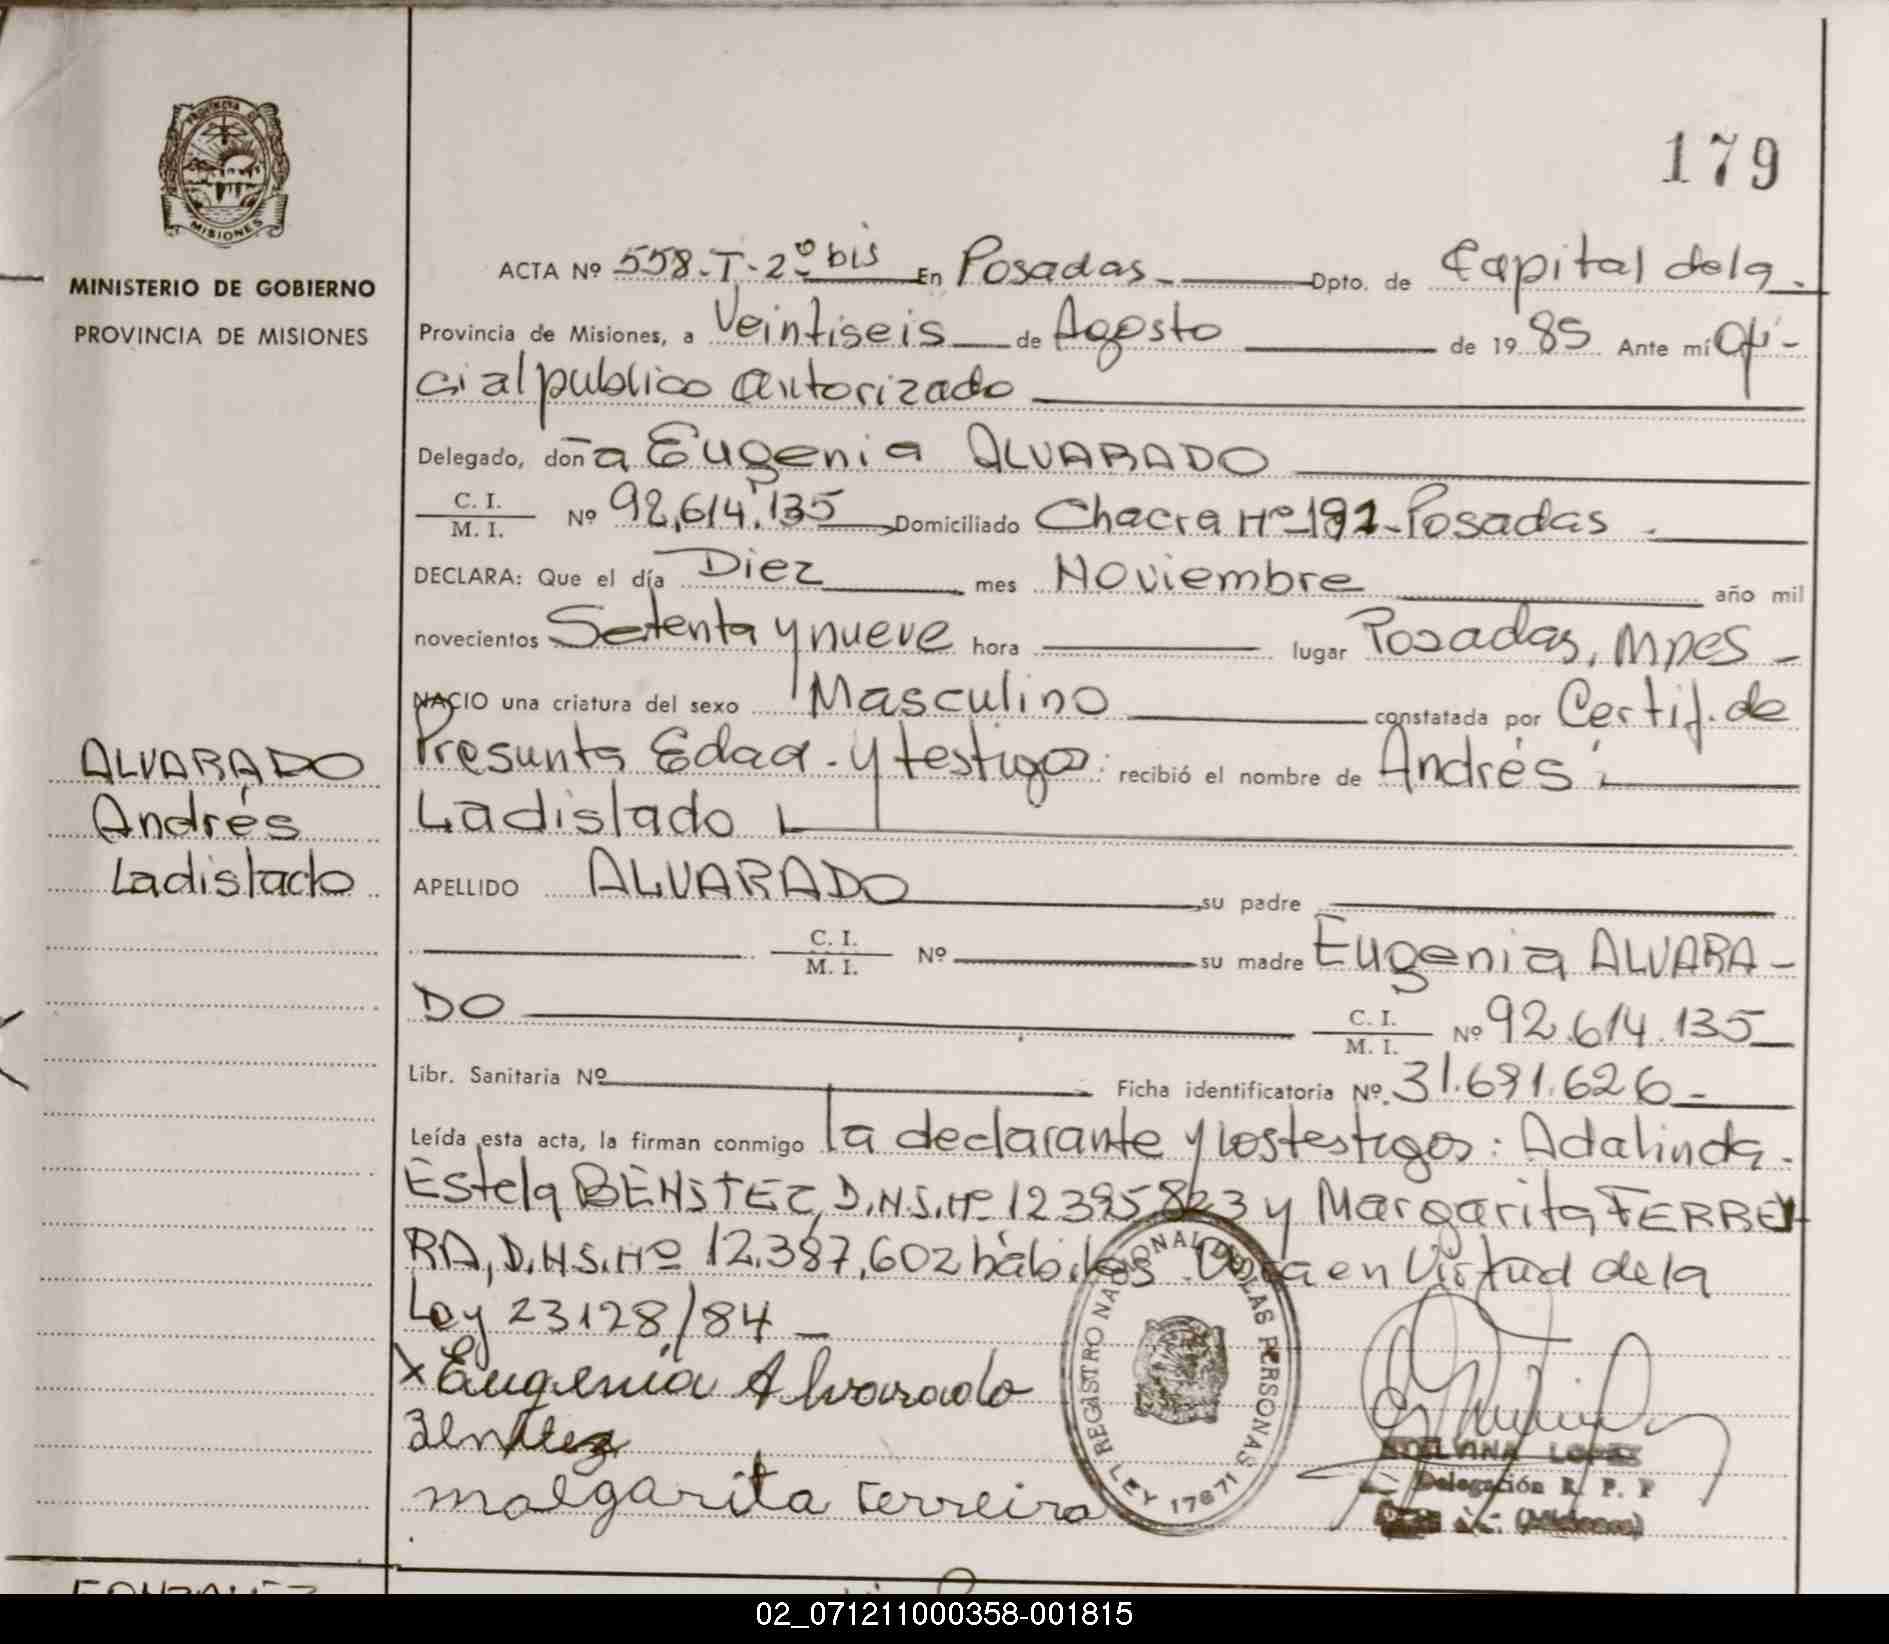 PROVINCIA DE
MISIONES
MINISTERIO DE GOBIERNO
PROVINCIA DE MISIONES
179
ACTA Nº 558-T-2º bis En Posadas Dpto. de Capital de la
Provincia de Misiones, a Veintiseis de Agosto de 1985 Ante mí Ofi-
cial publico autorizado
Delegado, doña Eugenia ALVARADO
C. I.
M. I. Nº 92.614.135 Domiciliado Chacra Nº 192-Posadas
DECLARA: Que el día Diez mes Noviembre año mil
novecientos Setenta y nueve hora lugar Posadas, Mnes -
NACIO una criatura del sexo Masculino constatada por Certif. de
Presunta Edad. y testigos: recibió el nombre de Andrés
Ladislado
APELLIDO ALVARADO su padre
C. I.
M. I. Nº su madre Eugenia ALVARA-
DO C. I.
M. I. Nº 92.614.135
Libr. Sanitaria Nº Ficha identificatoria Nº 31.691.626
Leída esta acta, la firman conmigo la declarante y los testigos: Adalinda
Estela BENITEZ, D.N.I. Nº 12395823 y Margarita FERREY
RA, D.N.I. Nº 12.387.602 hábiles en Virtud de la
Ley 23128/84 -
x Eugenia Alvarado
Benitez
Malgarita Ferreira
ALVARADO
Andrés
Ladislado
REGISTRO NACIONAL DE LAS PERSONAS
LEY 17671
LOPEZ
Delegación R. P. P
(Misiones)
02_071211000358-001815